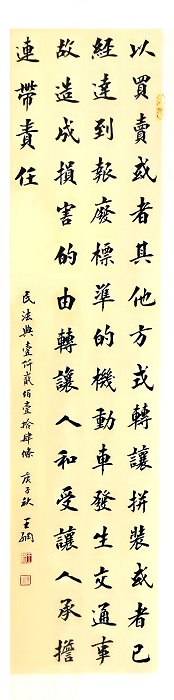 以買賣或者其他方式轉讓拼裝或者已
經達到報廢標準的機動車發生交通事
故造成損害的由轉讓人和受讓人承擔
連帶責任
民法典壹仟貳佰壹拾肆條 庚子秋 王